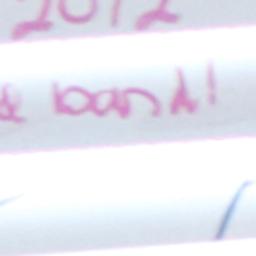 2012
& band!